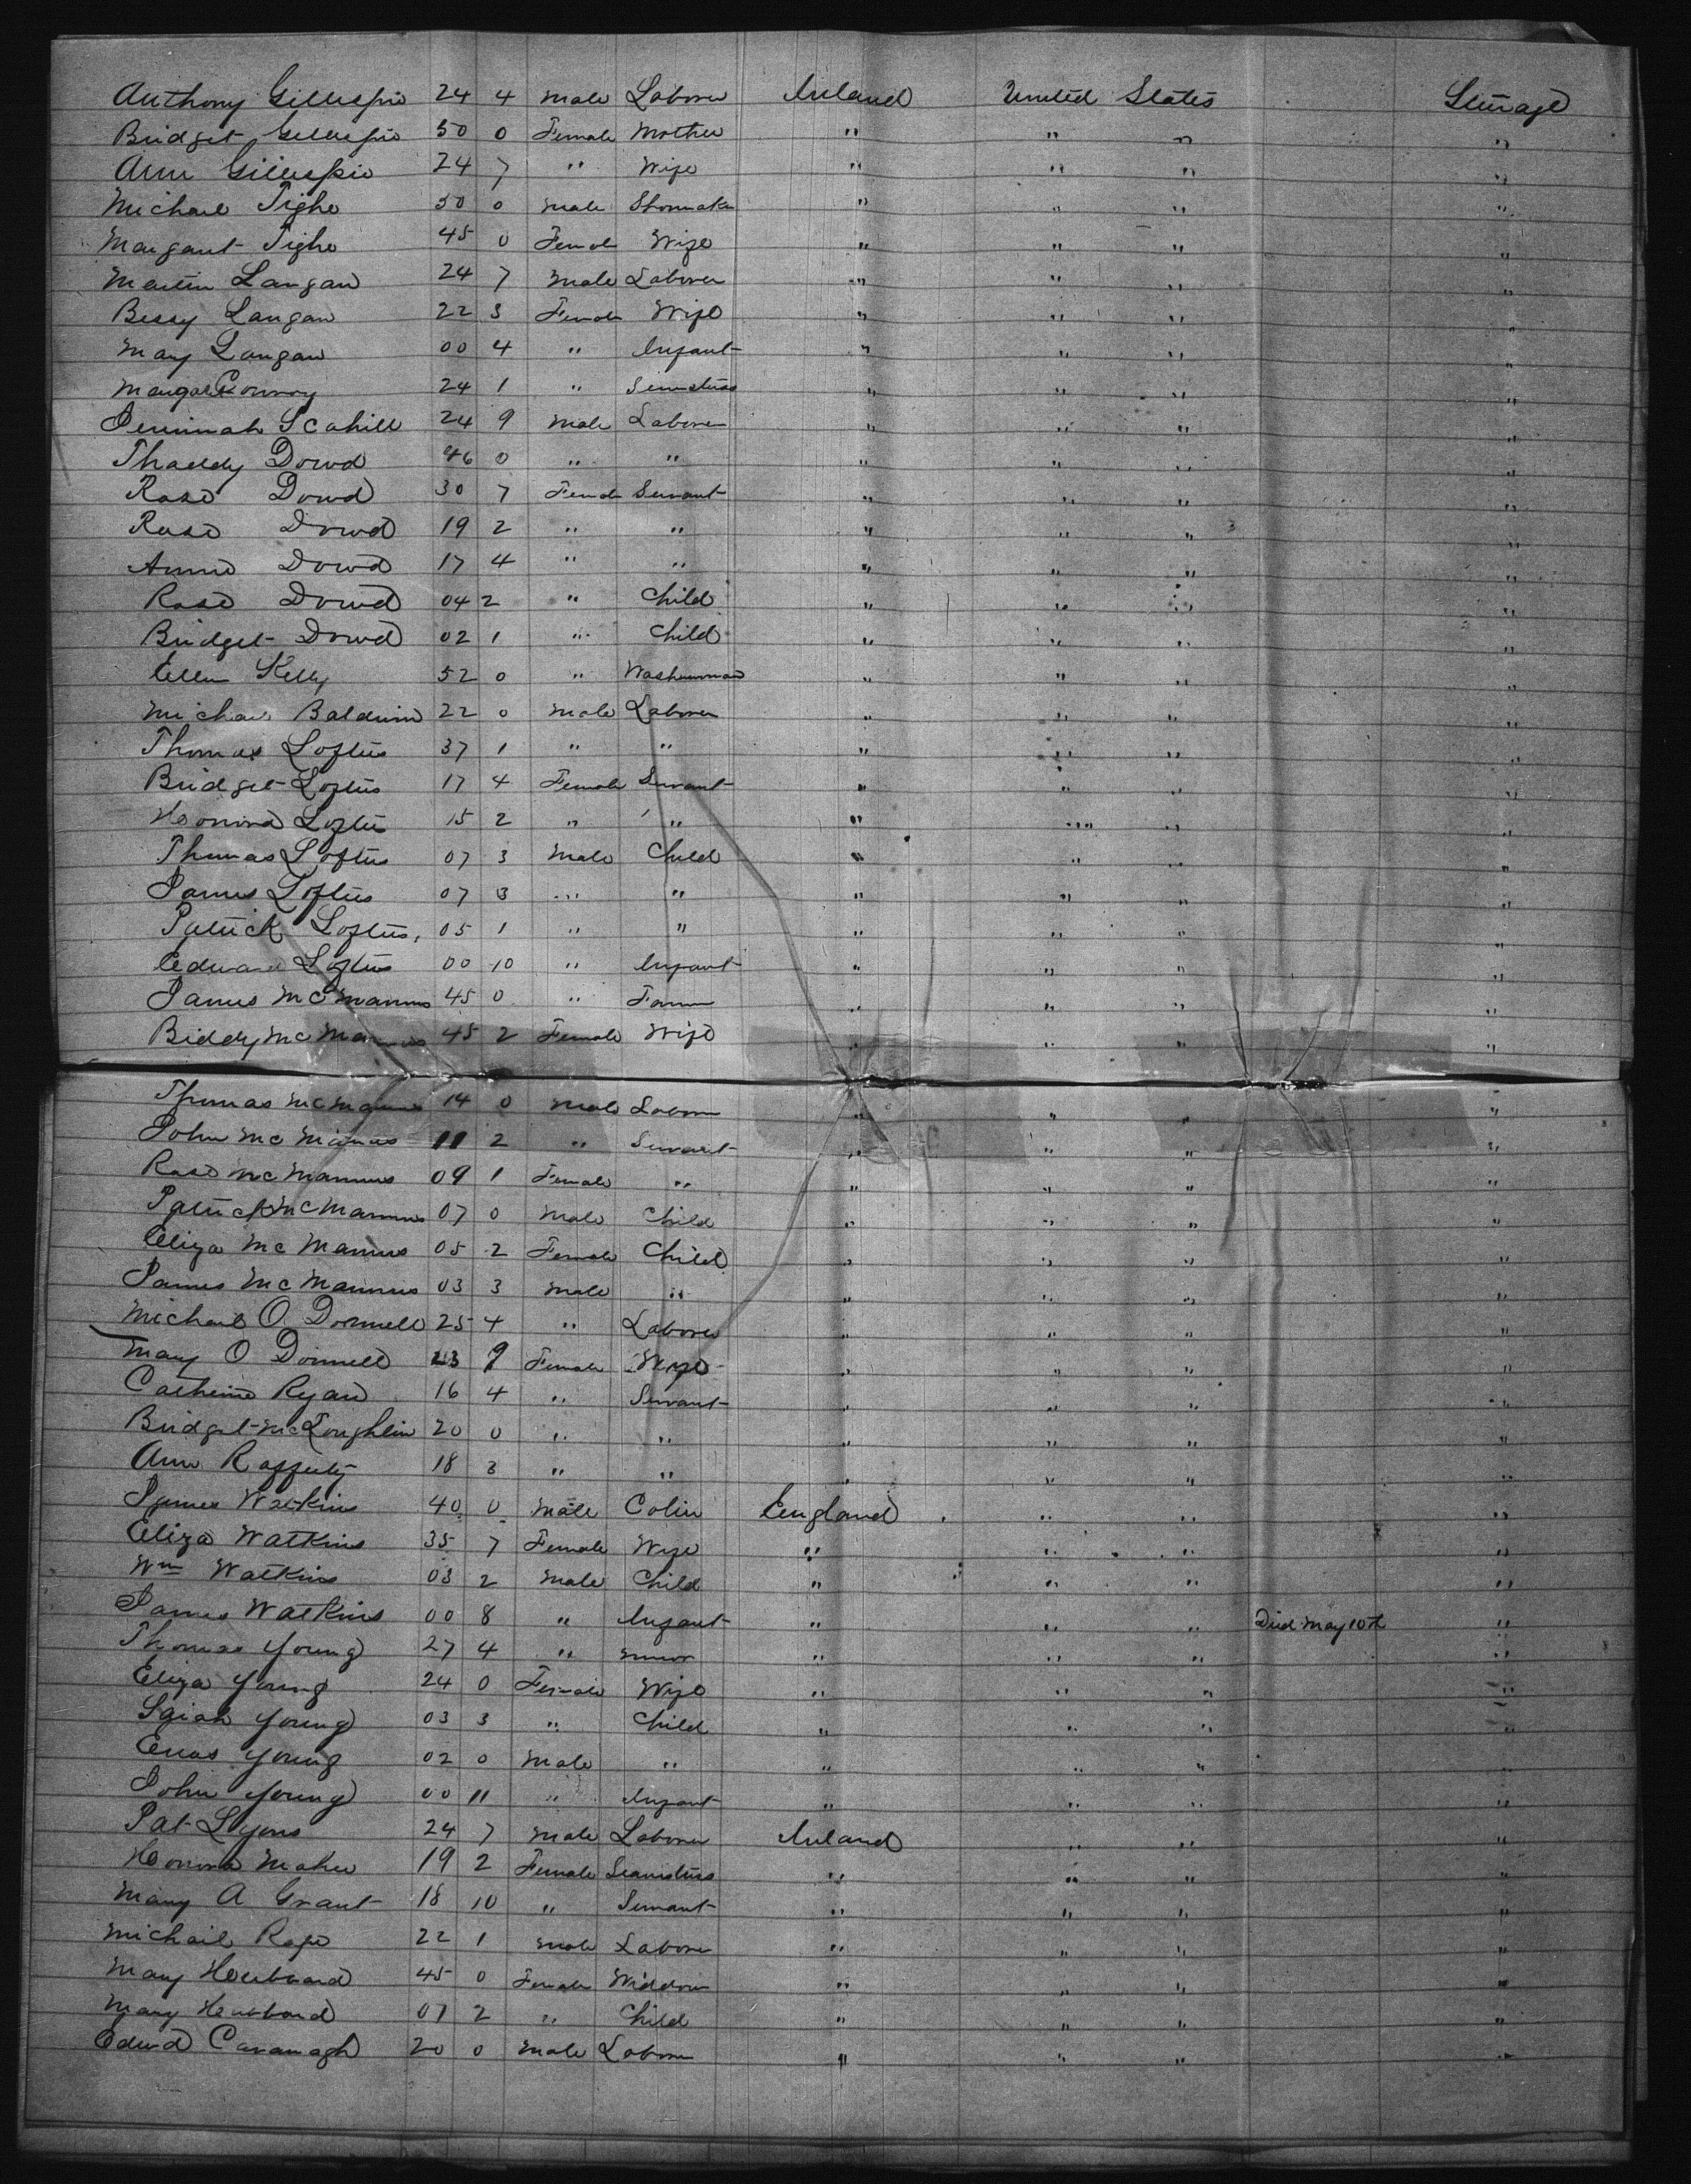 Anthony Gillespie 24 4 Male Laborer Ireland United States Steerage
Bridget Gillespie 50 0 Female Mother " " " "
Ann Gillespie 24 7 " Wife " " " "
Michael Tighe 50 0 Male Shoemaker " " " "
Margaret Tighe 45 0 Female Wife " " " "
Martin Langan 24 7 Male Laborer " " " "
Bessy Langan 22 3 Female Wife " " " "
Mary Langan 00 4 " Infant " " " "
Margaret Conroy 24 1 " Seamstress " " " "
Jerimiah Scahill 24 9 Male Laborer " " " "
Thaddy Dowd 46 0 " " " " " "
Rose Dowd 30 7 Female Servant " " " "
Rose Dowd 19 2 " " " " " "
Annie Dowd 17 4 " " " " " "
Rose Dowd 04 2 " Child " " " "
Bridget Dowd 02 1 " Child " " " "
Ellen Kelly 52 0 " Washwoman " " " "
Michael Baldwin 22 0 Male Laborer " " " "
Thomas Loftus 37 1 " " " " " "
Bridget Loftus 17 4 Female Servant " " " "
Honora Loftus 15 2 " " " " " "
Thomas Loftus 07 3 Male Child " " " "
James Loftus 07 3 " " " " " "
Patrick Loftus 05 1 " " " " " "
Edward Loftus 00 10 " Infant " " " "
James McManus 45 0 " Farmer " " " "
Biddy McManus 45 2 Female Wife " " " "
Thomas McManus 14 0 Male Laborer " " " "
John McManus 11 2 " Servant " " " "
Rose McMannus 09 1 Female " " " " "
Patrick McMannus 07 0 Male Child " " " "
Eliza McManus 05 2 Female Child " " " "
James McMannus 03 3 Male " " " " "
Michael O Donnell 25 4 " Laborer " " " "
Mary O Donnell 23 9 Female Wife " " " "
Catherine Ryan 16 4 " Servant " " " "
Bridget McLoughlin 20 0 " " " " " "
Ann Rafferty 18 3 " " " " " "
James Watkins 40 0 Male England " " "
Eliza Watkins 35 7 Female Wife " " " "
Wm Watkins 03 2 Male Child " " " "
James Watkins 00 8 " Infant " " " Died May 10th "
Thomas Young 27 4 " Miner " " " "
Eliza Young 24 0 Female Wife " " " "
Young 03 3 " Child " " " "
Enos Young 02 0 Male " " " " "
John Young 00 11 " Infant " " " "
Pat Lyons 24 7 Male Laborer Ireland " " "
Honora Maher 19 2 Female Seamstress " " " "
Mary A Grant 18 10 " Servant " " " "
Michael Rape 22 1 Male Laborer " " " "
Mary 45 0 Female Widdow " " " "
Mary 07 2 " Child " " " "
Edwd Cavanagh 20 0 Male Laborer " " " "